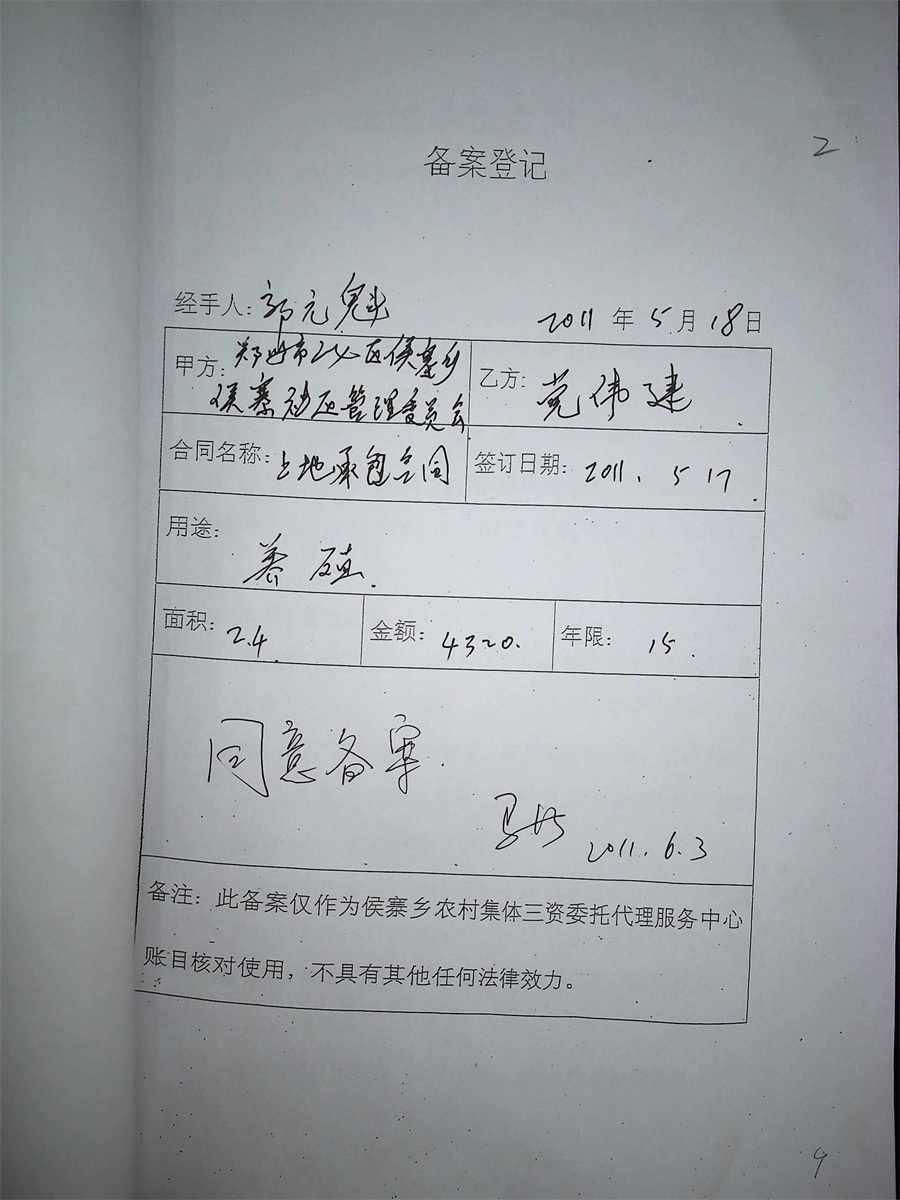 2
备案登记
经手人:郭元魁 2011 年 5 月 18 日
甲方:郑州市二七区侯寨乡
侯寨社区管理委员会
乙方:
伟建
合同名称:土地承包合同
签订日期:2011.5 17.
用途:
养殖.
面积:2.4
金额:4320.
年限:15.
同意备案.
2011.6.3
备注:此备案仅作为侯寨乡农村集体三资委托代理服务中心
账目核对使用,不具有其他任何法律效力。
9